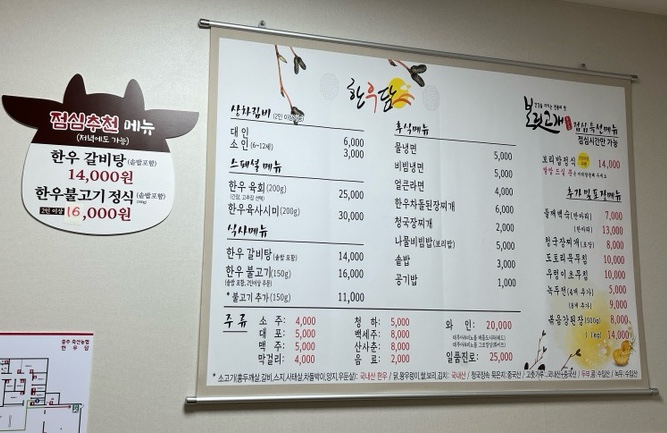 점심추천 메뉴
(저녁에도 가능)
한우 갈비탕 (솥밥포함)
14,000원
한우불고기 정식 (솥밥포함)
2인 이상 16,000원
충주 축산농협
한우담
한우담
상차림비
대인 6,000
소인 (6~12세) 3,000
스페셜 메뉴
한우 육회 (200g) 25,000
한우육사시미 (200g) 30,000
식사메뉴
한우 갈비탕 (솥밥 포함) 14,000
한우 불고기 (150g) 16,000
(솥밥 포함, 2인이상 주문)
*불고기 추가 (150g) 11,000
후식메뉴
물냉면 5,000
비빔냉면 5,000
얼큰라면 4,000
한우차돌된장찌개 6,000
청국장찌개 2,000
나물비빔밥 (보리밥) 5,000
솥밥 3,000
공기밥 1,000
보릿고개 점심특선메뉴
점심시간만 가능
보리밥정식 14,000
추가 및 포장메뉴
들깨백숙 (반마리) 7,000
(한마리) 13,000
청국장찌개 (포장) 8,000
도토리묵무침 10,000
우렁이초무침 10,000
녹두전 (4개 추가) 5,000
(8개 추가) 9,000
볶음강된장 (500g) 8,000
(1.1kg) 14,000
주류
소주: 4,000
대포: 5,000
맥주: 5,000
막걸리: 4,000
청하: 5,000
백세주: 8,000
산사춘: 8,000
음료: 2,000
와인: 20,000
일품진로: 25,000